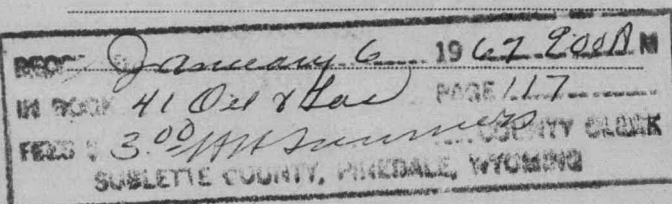 RECORDED January 6 1967 9:00 A M
IN BOOK 41 Oil & Gas PAGE 117
FEES $ 3.00 COUNTY CLERK
SUBLETTE COUNTY, PINEDALE, WYOMING